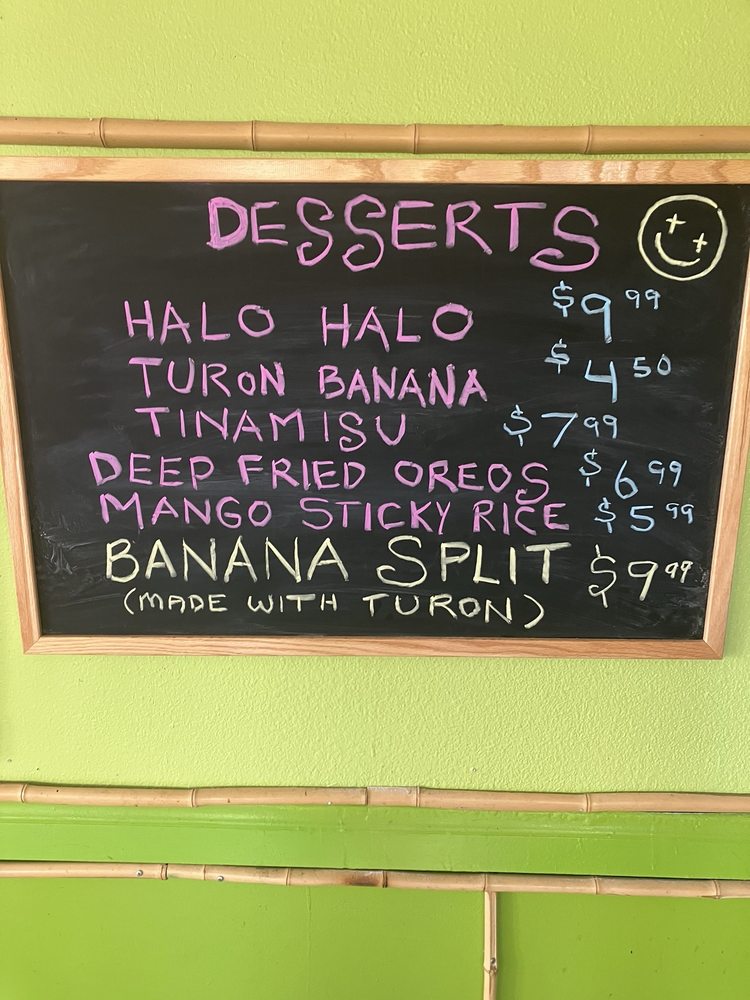 DESSERTS
HALO HALO $9.99
TURON BANANA $4.50
TINAMISU $7.99
DEEP FRIED OREOS $6.99
MANGO STICKY RICE $5.99
BANANA SPLIT $9.99
(MADE WITH TURON)